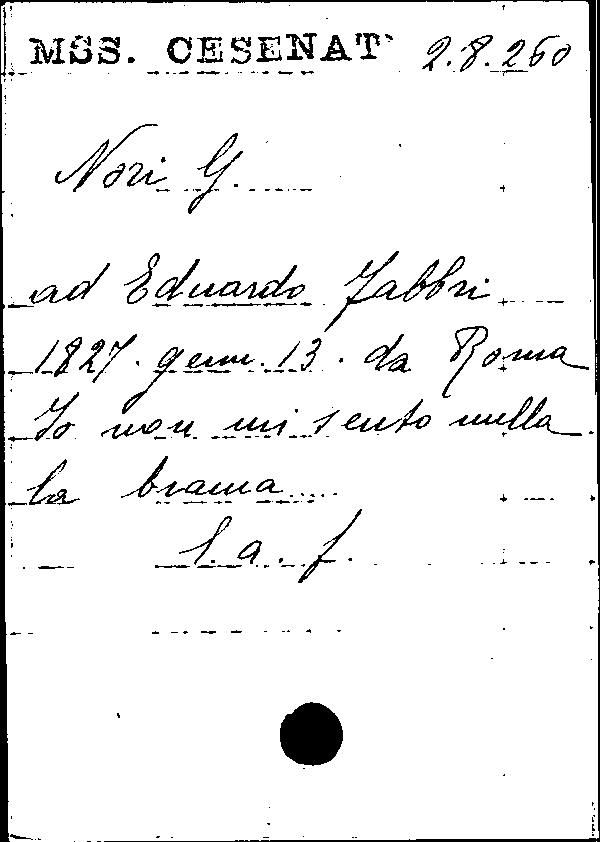 MSS. CESENAT 2.8.260
Nori G.
ad Eduardo Fabbri
1827. genn. 13. da Roma
Io non mi sento nulla
la brama....
l. a. f.